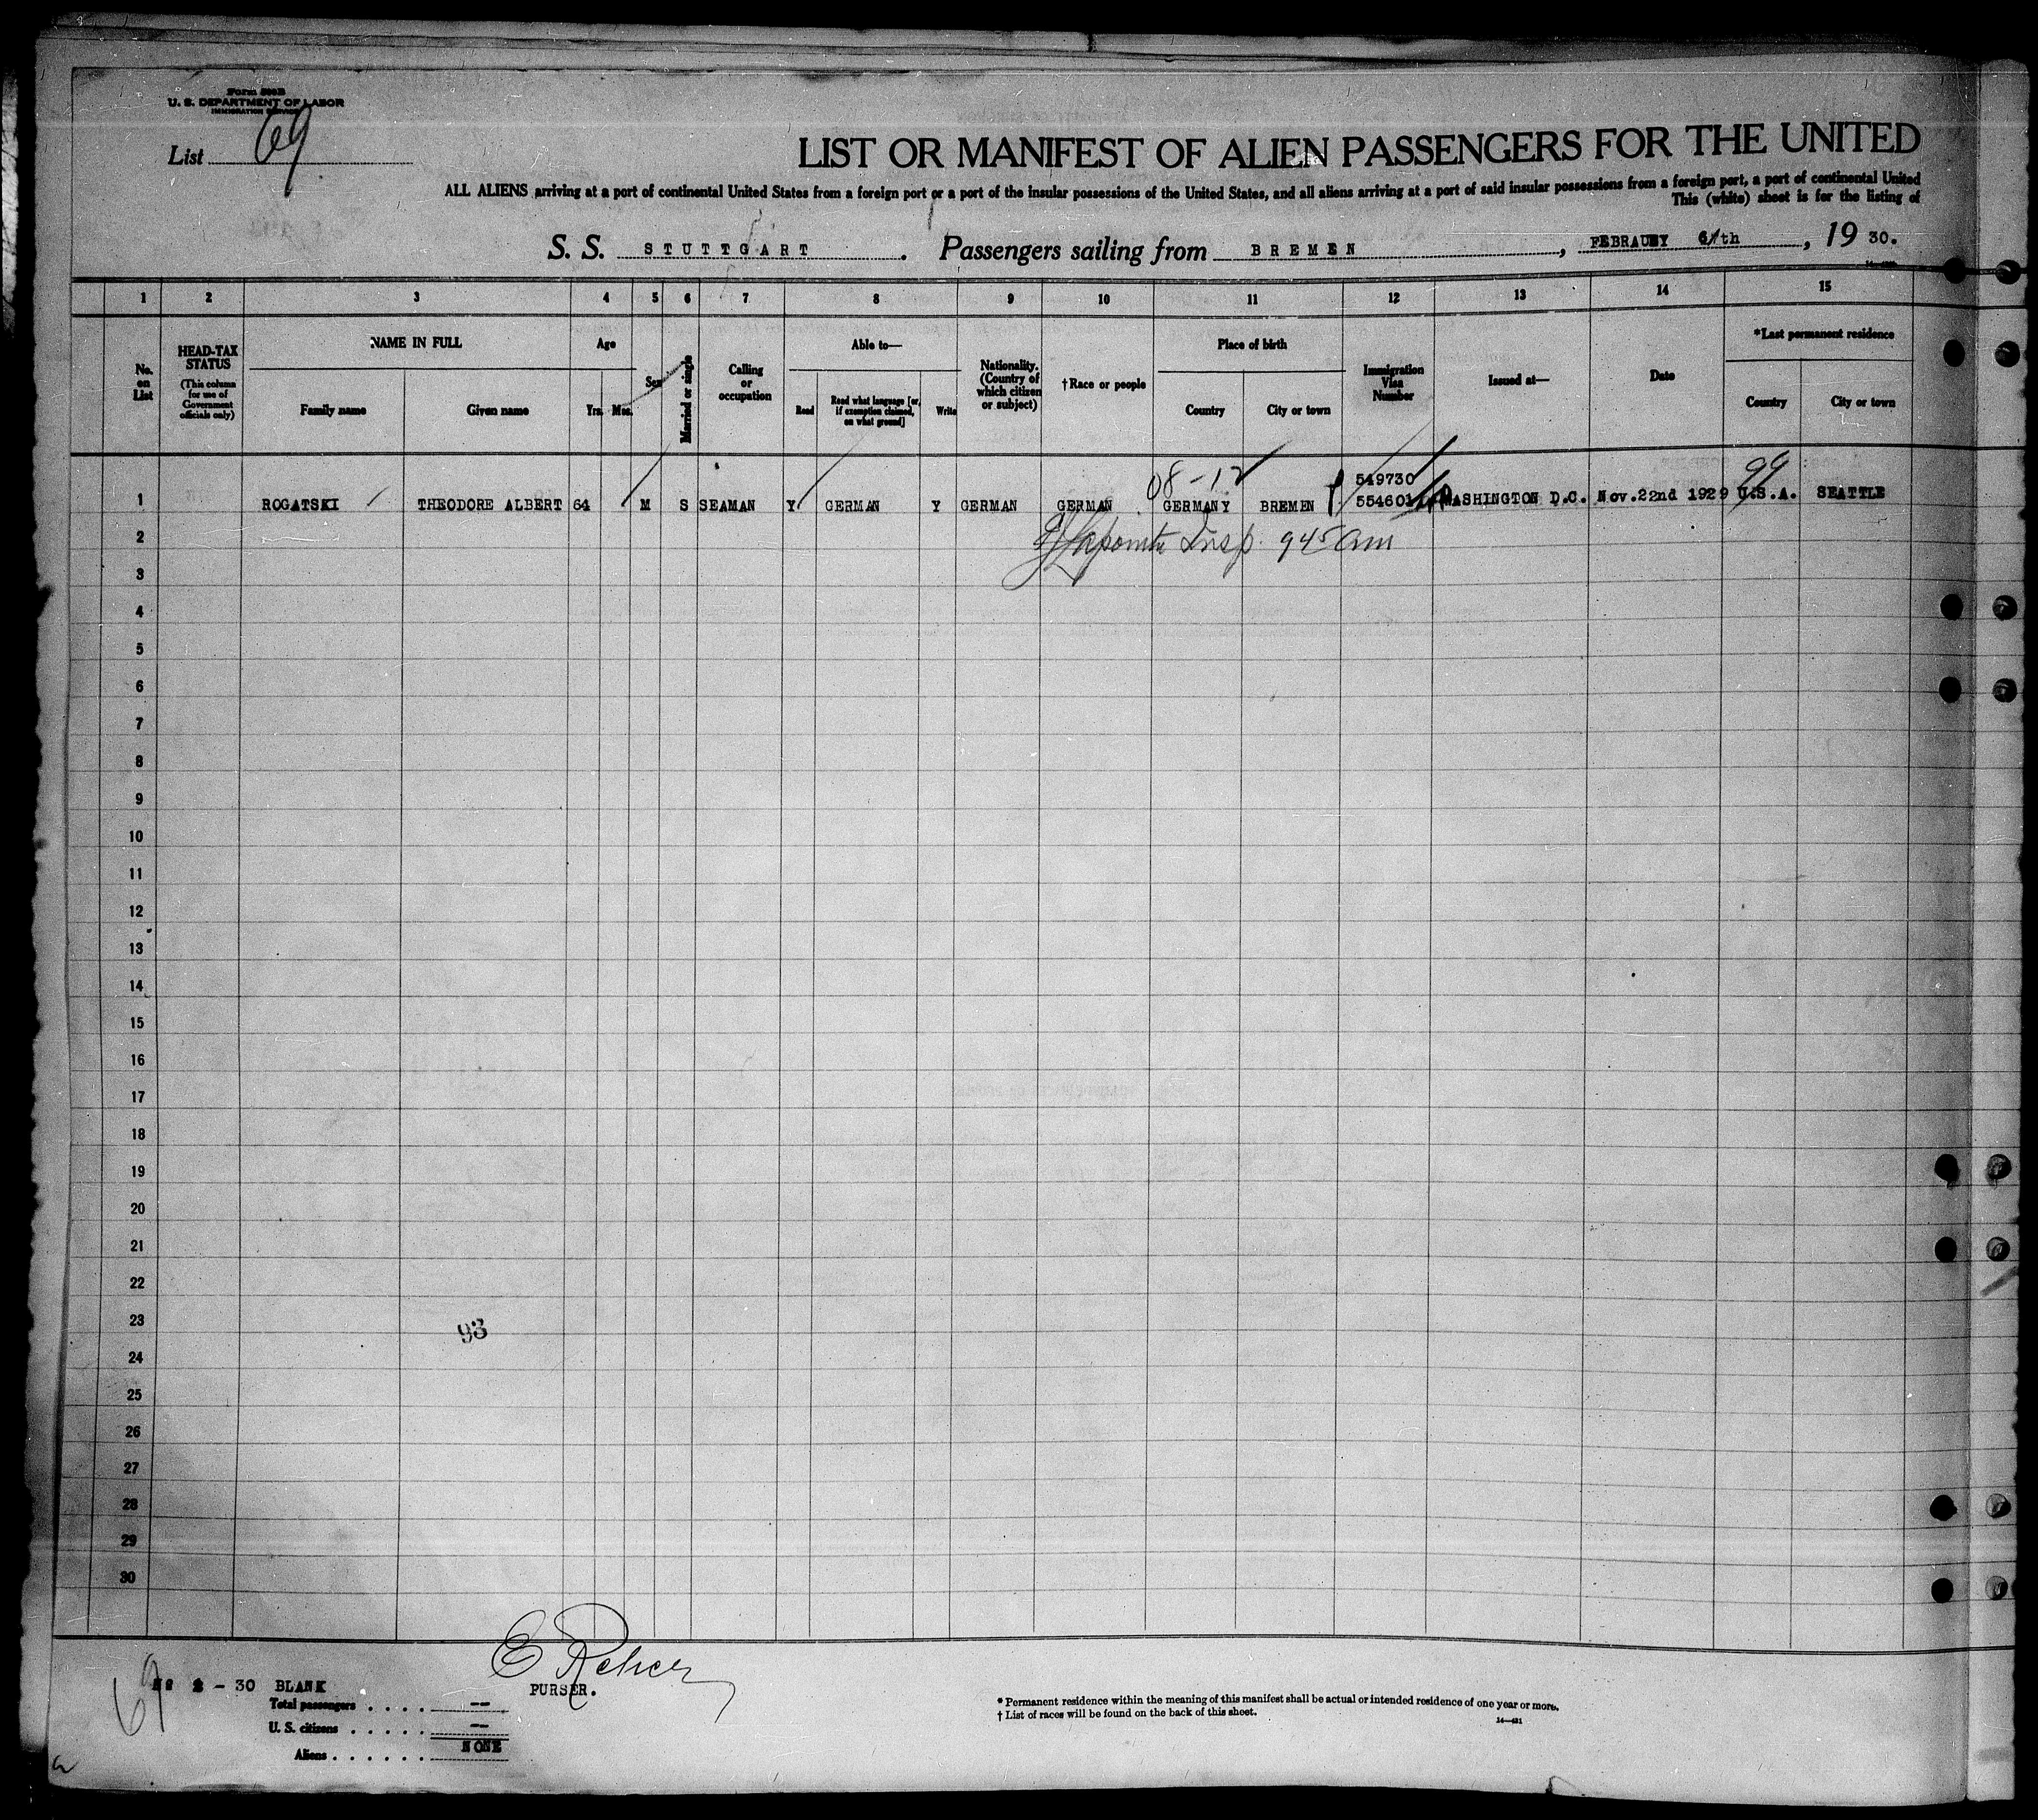 Form 500B
U. S. DEPARTMENT OF LABOR
IMMIGRATION SERVICE
List 69
LIST OR MANIFEST OF ALIEN PASSENGERS FOR THE UNITED
ALL ALIENS arriving at a port of continental United States from a foreign port or a port of the insular possessions of the United States, and all aliens arriving at a port of said insular possessions from a foreign port, a port of continental United
This (white) sheet is for the listing of
S. S. STUTTGART. Passengers sailing from BREMEN, FEBRAURY 6th, 19 30.
1 2 3 4 5 6 7 8 9 10 11 12 13 14 15
No. on List
HEAD-TAX STATUS
(This column for use of Government officials only)
NAME IN FULL
Family name Given name
Age
Yrs. Mos.
Sex
Married or single
Calling or occupation
Able to—
Read Read what language [or, if exemption claimed, on what ground] Write
Nationality. (Country of which citizen or subject)
†Race or people
Place of birth
Country City or town
Immigration Visa Number
Issued at—
Date
*Last permanent residence
Country City or town
08-12 549730 99
1 ROGATSKI THEODORE ALBERT 64 M S SEAMAN Y GERMAN Y GERMAN GERMAN GERMANY BREMEN 554601 WASHINGTON D.C. Nov.22nd 1929 U.S.A. SEATTLE
2 Insp. 945 am
3
4
5
6
7
8
9
10
11
12
13
14
15
16
17
18
19
20
21
22
23
93
24
25
26
27
28
29
30
69
2 - 30 BLANK
PURSER.
Total passengers . . . . --
U. S. citizens . . . . . --
Aliens . . . . . . NONE
* Permanent residence within the meaning of this manifest shall be actual or intended residence of one year or more.
† List of races will be found on the back of this sheet.
14—421